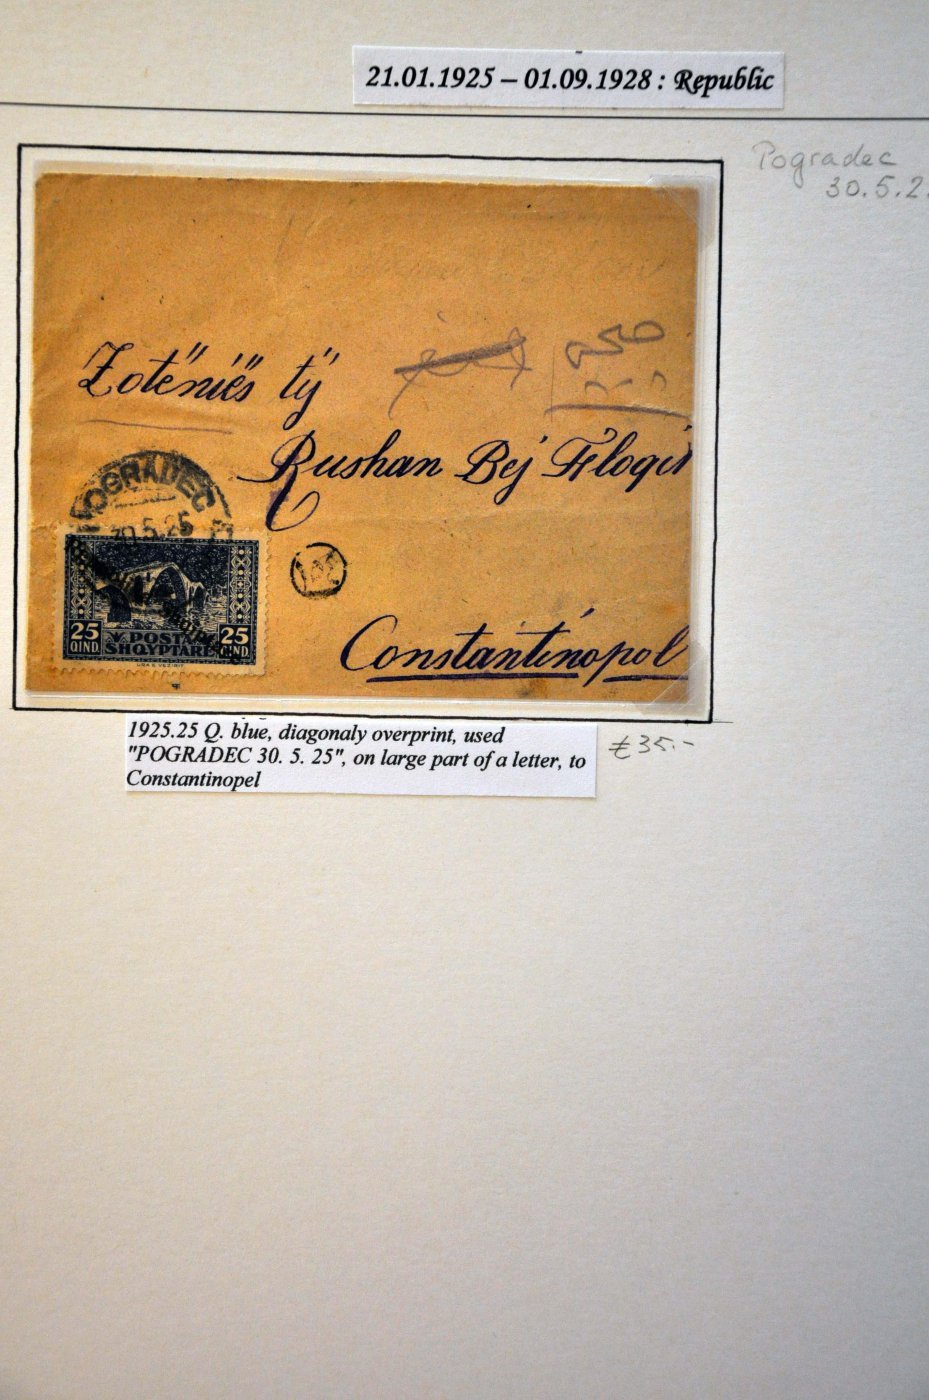 21.01.1925 – 01.09.1928 : Republic
Pogradec
30.5.2
Zotëniës tÿ
Rushan Bej
POGRADEC
30.5.25
Constantinopol
25 25
QIND. POSTA QIND.
SHQYPTARE
1925.25 Q. blue, diagonaly overprint, used
"POGRADEC 30. 5. 25", on large part of a letter, to
Constantinopel
€35.-